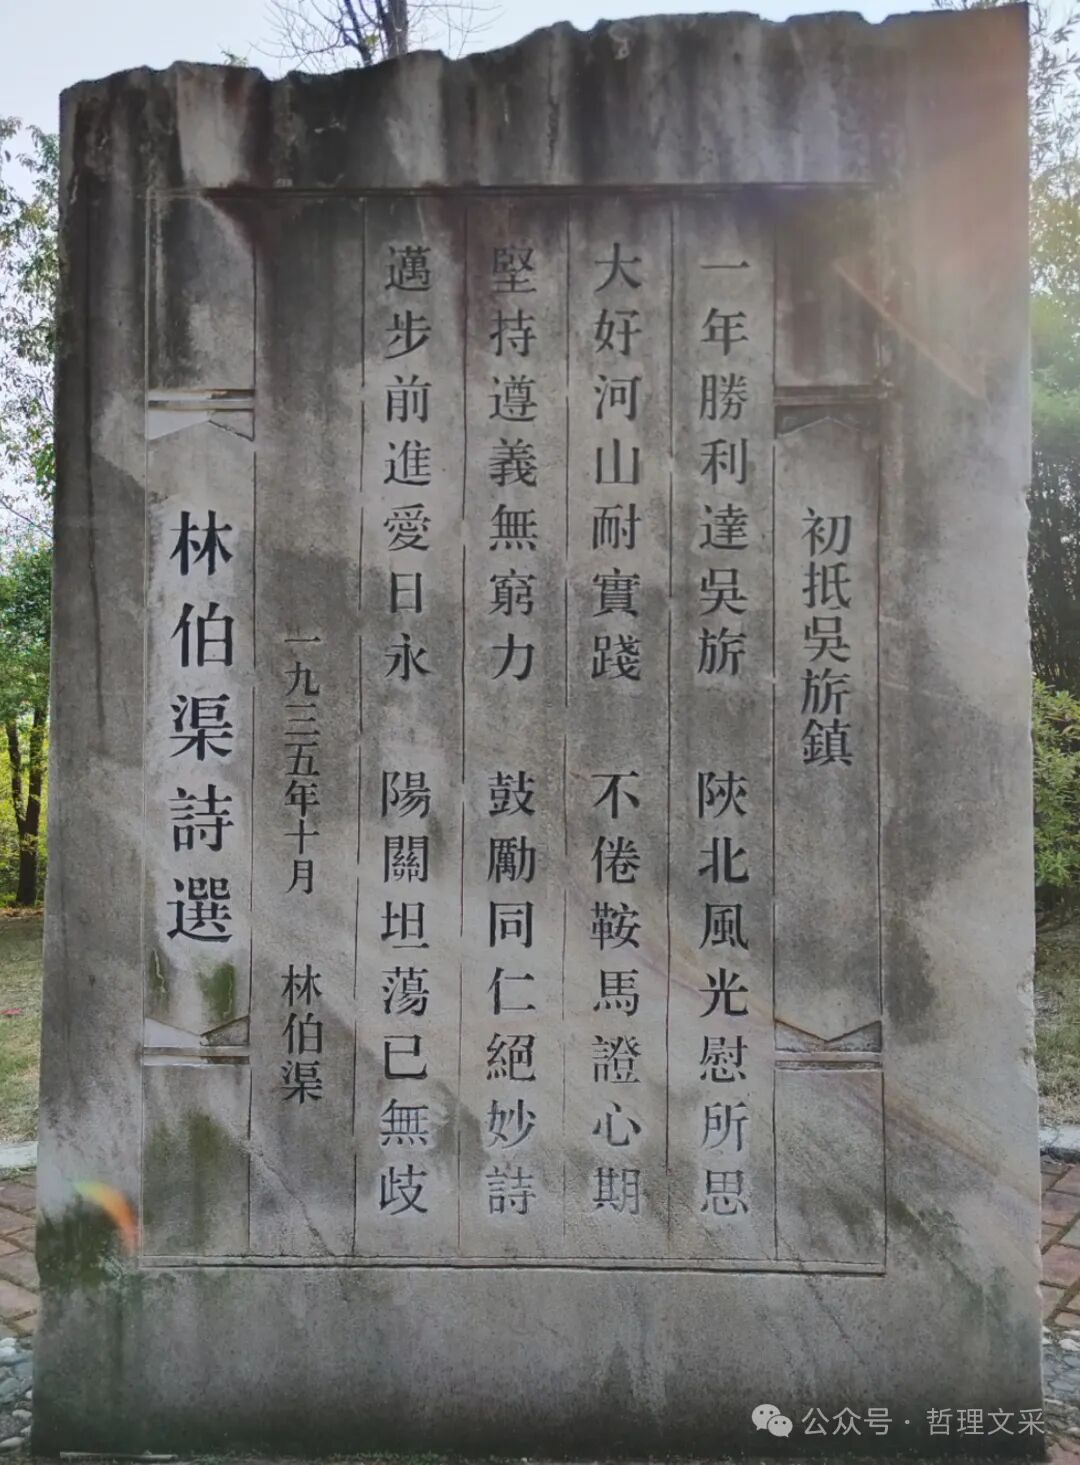 初抵吳旂鎮
一年勝利達吳旂 陝北風光慰所思
大好河山耐實踐 不倦鞍馬證心期
堅持遵義無窮力 鼓勵同仁絕妙詩
邁步前進愛日永 陽關坦蕩已無歧
一九三五年十月 林伯渠
林伯渠詩選
公众号·哲理文采